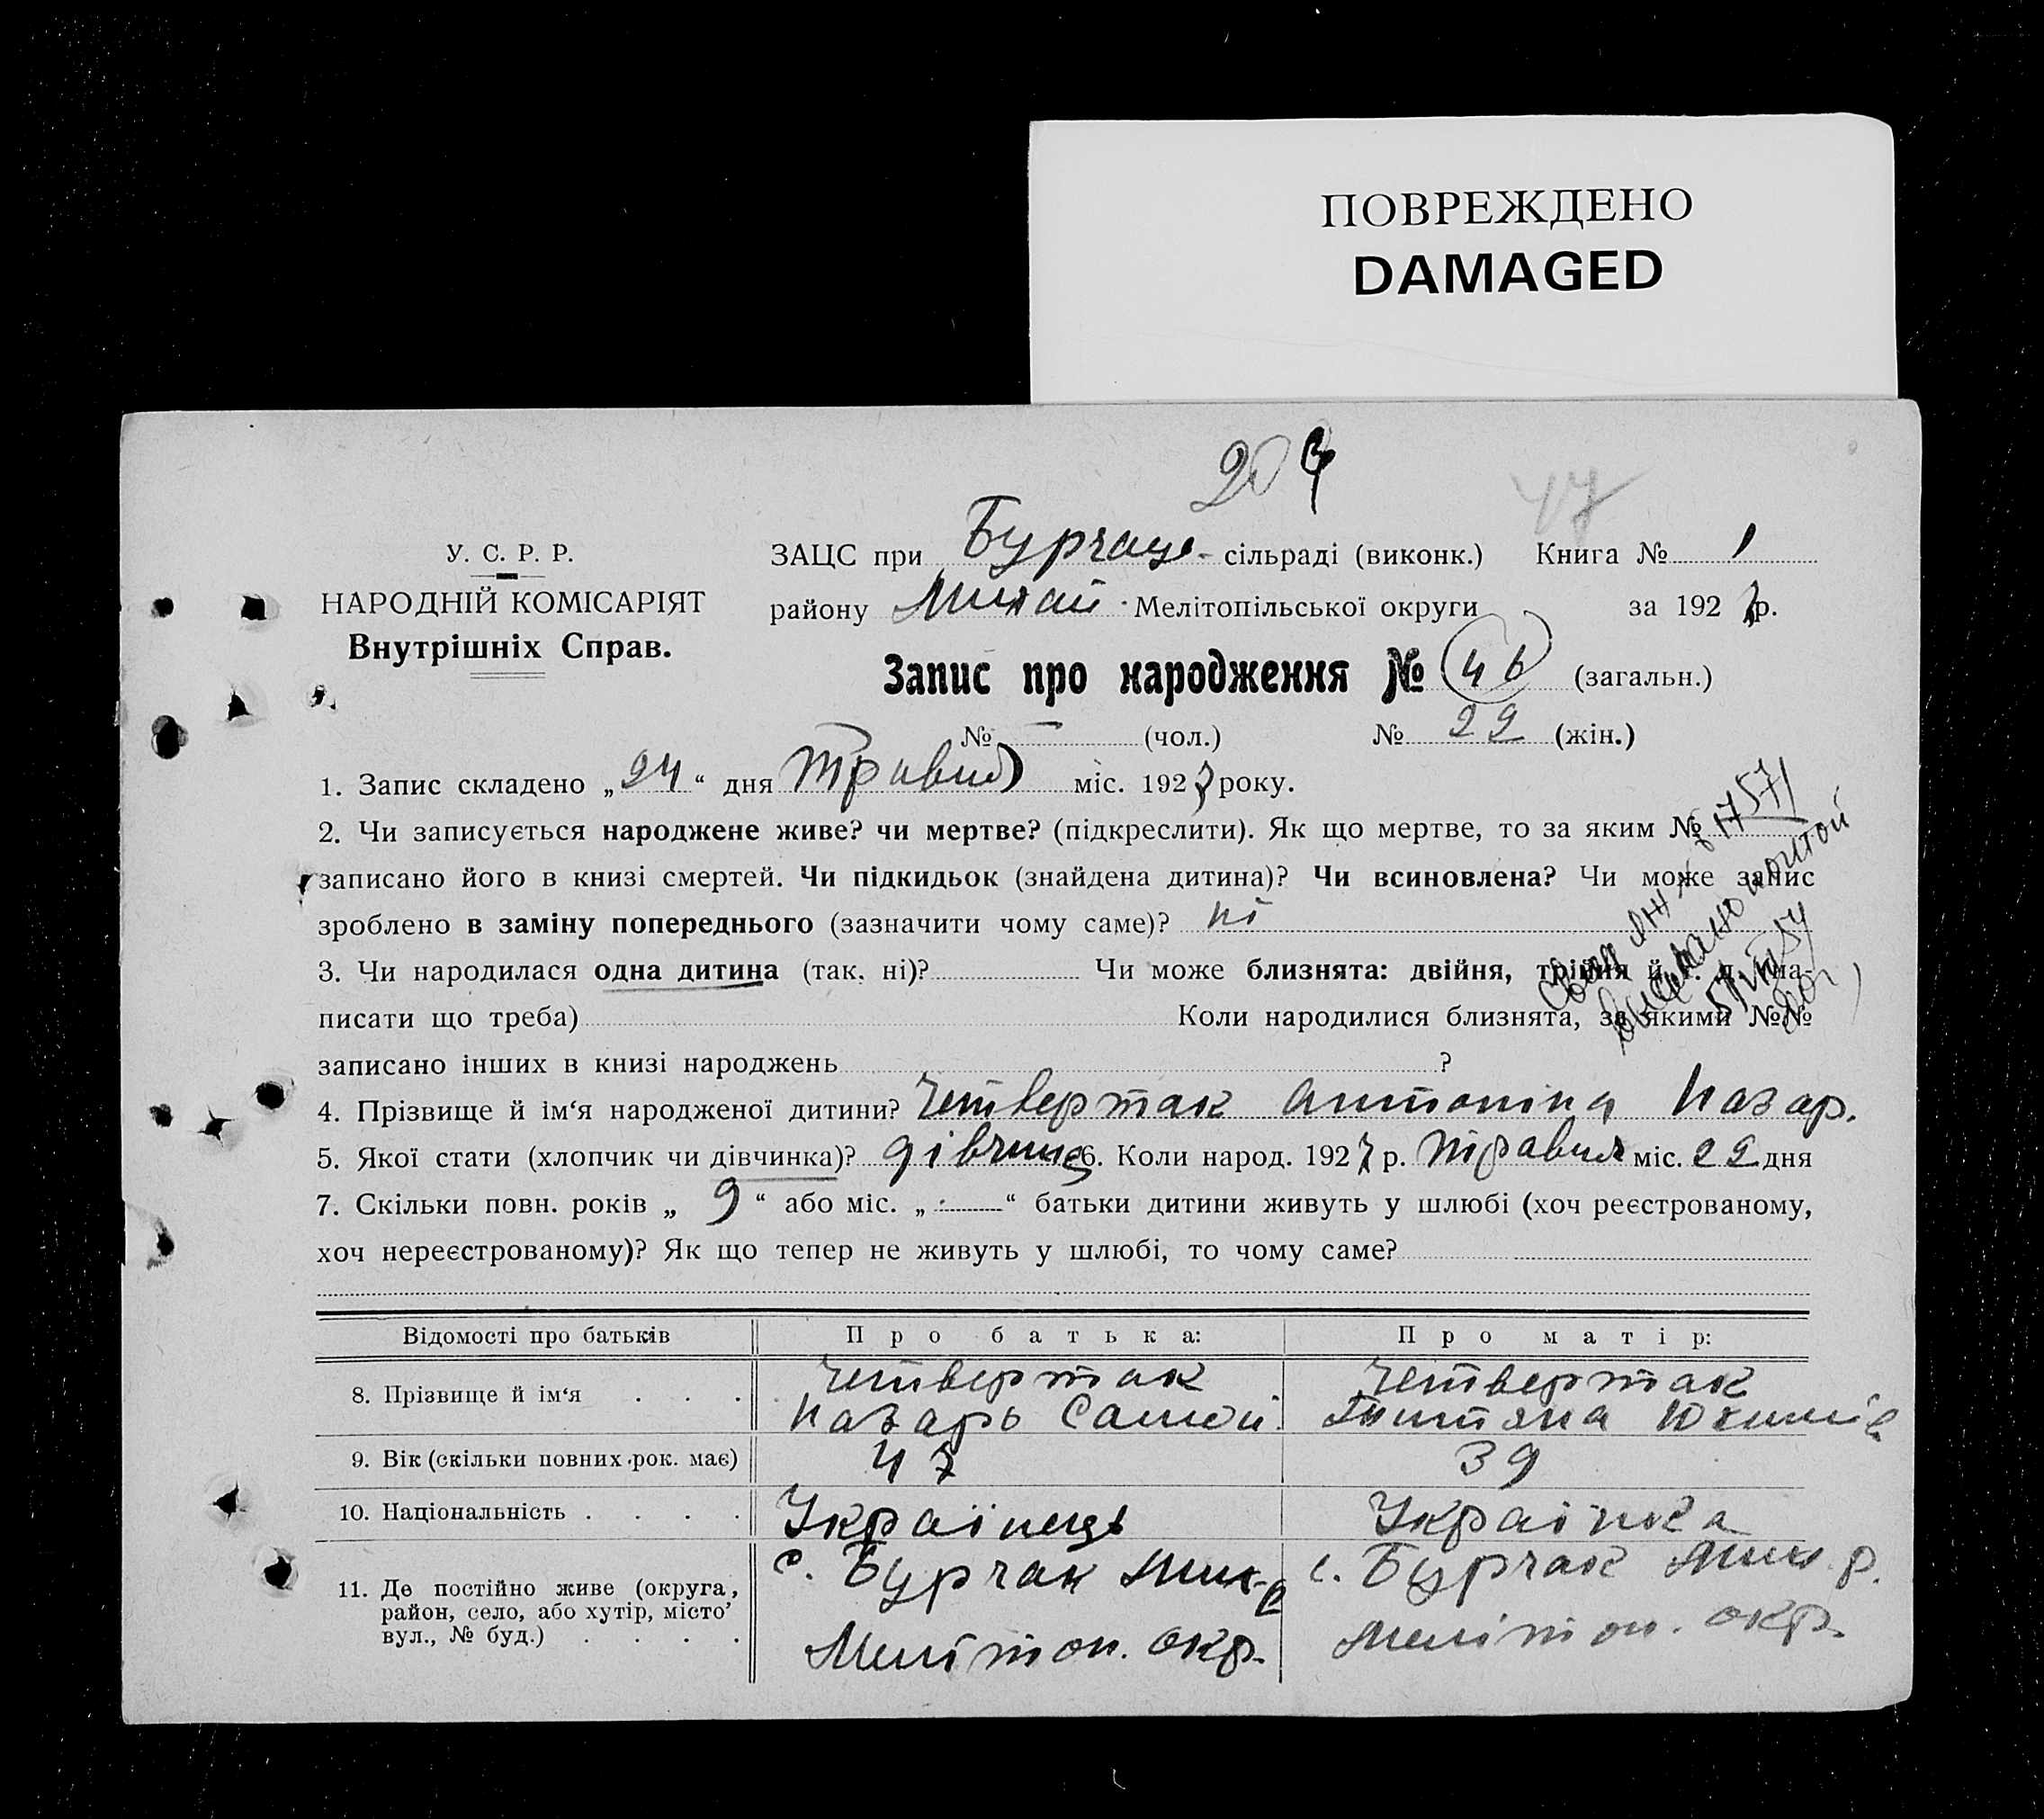 ПОВРЕЖДЕНО
DAMAGED
У. С. Р. Р.
НАРОДНІЙ КОМІСАРІЯТ
Внутрішніх Справ.
ЗАЦС при Бурчац- сільраді (виконк.) Книга № 1
району Михай Мелітопільської округи за 1927 р.
Запис про народження № 46 (загальн.)
№ — (чол.) № 29 (жін.)
1. Запис складено „24“ дня Травня міс. 1927 року.
2. Чи записується народжене живе? чи мертве? (підкреслити). Як що мертве, то за яким №
записано його в книзі смертей. Чи підкидьок (знайдена дитина)? Чи всиновлена? Чи може запис
зроблено в заміну попереднього (зазначити чому саме)? ні
3. Чи народилася одна дитина (так, ні)? Чи може близнята: двійня, трійня й т. п. (на-
писати що треба) Коли народилися близнята, за якими №№
записано інших в книзі народжень ?
4. Прізвище й ім‘я народженої дитини? Четвертак Антоніна Назар.
5. Якої стати (хлопчик чи дівчинка)? дівчина 6. Коли народ. 1927 р. травня міс. 22 дня
7. Скільки повн. років „ 9 “ або міс. „ — “ батьки дитини живуть у шлюбі (хоч реєстрованому,
хоч нереєстрованому)? Як що тепер не живуть у шлюбі, то чому саме?
Відомості про батьків Про батька: Про матір:
8. Прізвище й ім‘я . . . Четвертак Назарь Самой. Четвертак Титяна Юхимів
9. Вік (скільки повних рок. має) 47 39
10. Національність . . . . Українець Українка
11. Де постійно живе (округа, район, село, або хутір, місто’ вул., № буд.) . . . . с. Бурчак Мих. р Мелітоп. окр. с. Бурчак Мих. р. Мелітоп. окр.